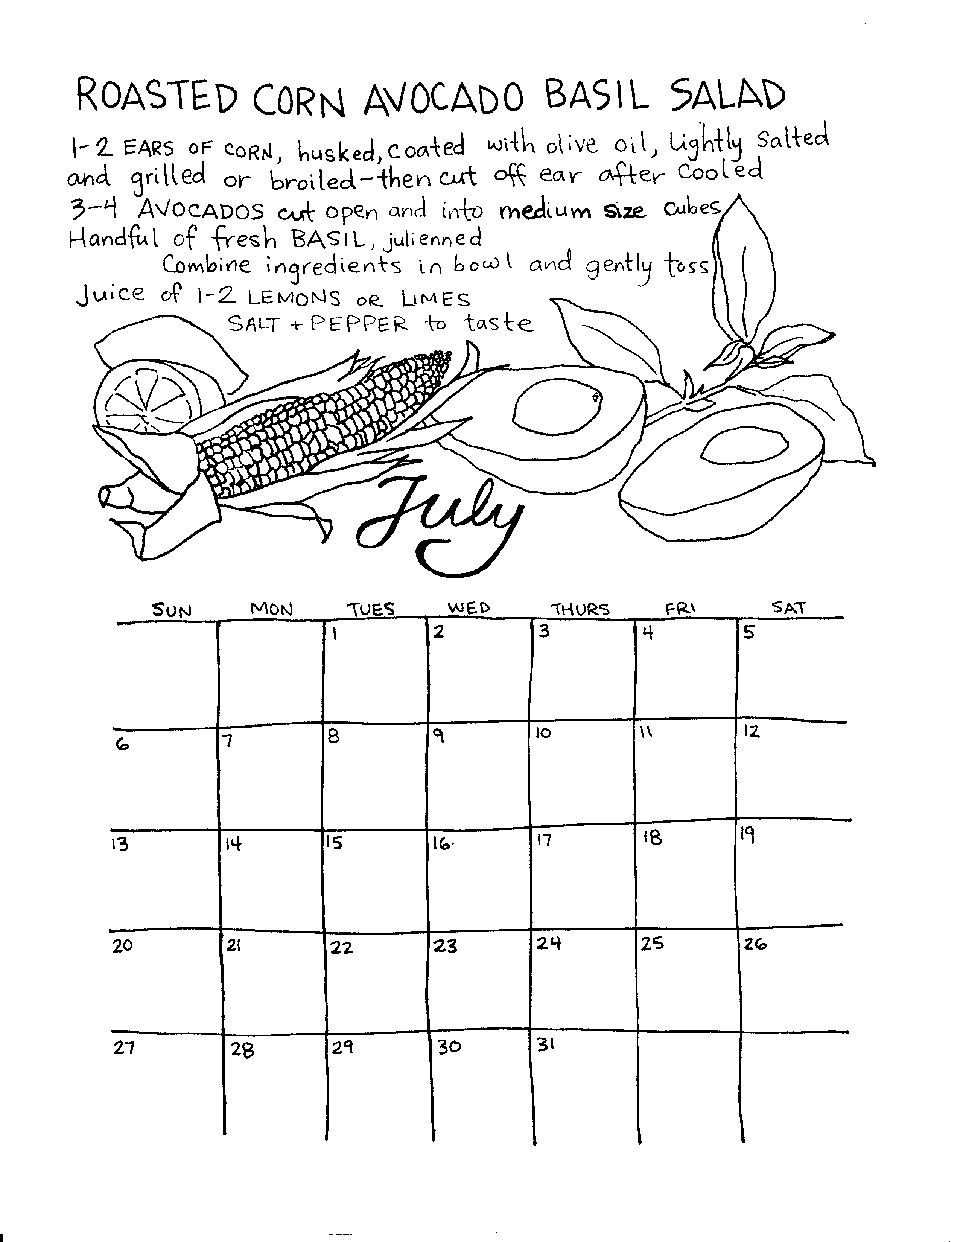 ROASTED CORN AVOCADO BASIL SALAD
1-2 EARS OF CORN, husked, coated with olive oil, Lightly Salted
and grilled or broiled-then cut off ear after Cooled
3-4 AVOCADOS cut open and into medium size cubes
Handful of fresh BASIL, julienned
Combine ingredients in bowl and gently toss
Juice of 1-2 LEMONS OR LIMES
SALT + PEPPER to taste
July
SUN MON TUES WED THURS FRI SAT
1 2 3 4 5
6 7 8 9 10 11 12
13 14 15 16 17 18 19
20 21 22 23 24 25 26
27 28 29 30 31